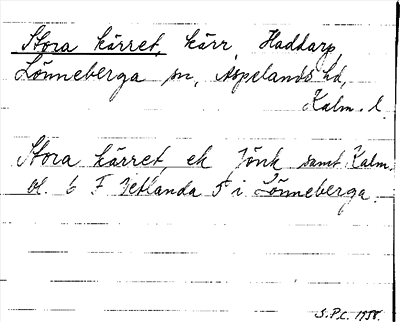 Stora kärret, kärr, Haddarp,
Lönneberga sn, Aspelands hd,
Kalm. l.
Stora kärret, ek Jönk samt Kalm.
bl. 6 F Vetlanda 5 i Lönneberga.
S.P.L. 1958.